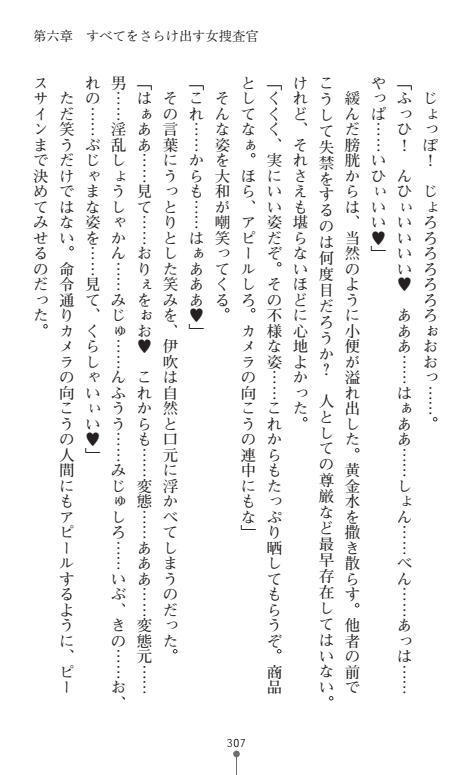 第六章　すべてをさらけ出す女捜査官
じょっぽ！　じょろろろろろろぉおおっ……。
「ふっひ！　んひぃいいいい♥　あああ……はぁああ……しょん……べん……あっは……
やっぱ……いひぃいい♥」
緩んだ膀胱からは、当然のように小便が溢れ出した。黄金水を撒き散らす。他者の前で
こうして失禁をするのは何度目だろうか？　人としての尊厳など最早存在してはいない。
けれど、それさえも堪らないほどに心地よかった。
「くくく、実にいい姿だぞ。その不様な姿……これからもたっぷり晒してもらうぞ。商品
としてなぁ。ほら、アピールしろ。カメラの向こうの連中にもな」
そんな姿を大和が嘲笑ってくる。
「これ……からも……はぁあああ♥」
その言葉にうっとりとした笑みを、伊吹は自然と口元に浮かべてしまうのだった。
「はぁああ……見て……おりぇをぉお♥　これからも……変態……あああ……変態元……
男……淫乱しょうしゃかん……みじゅ……んふうう……みじゅしろ……いぶ、きの……お、
れの……ぶじゃまな姿を……見て、くらしゃいぃい♥」
ただ笑うだけではない。命令通りカメラの向こうの人間にもアピールするように、ピー
スサインまで決めてみせるのだった。
307